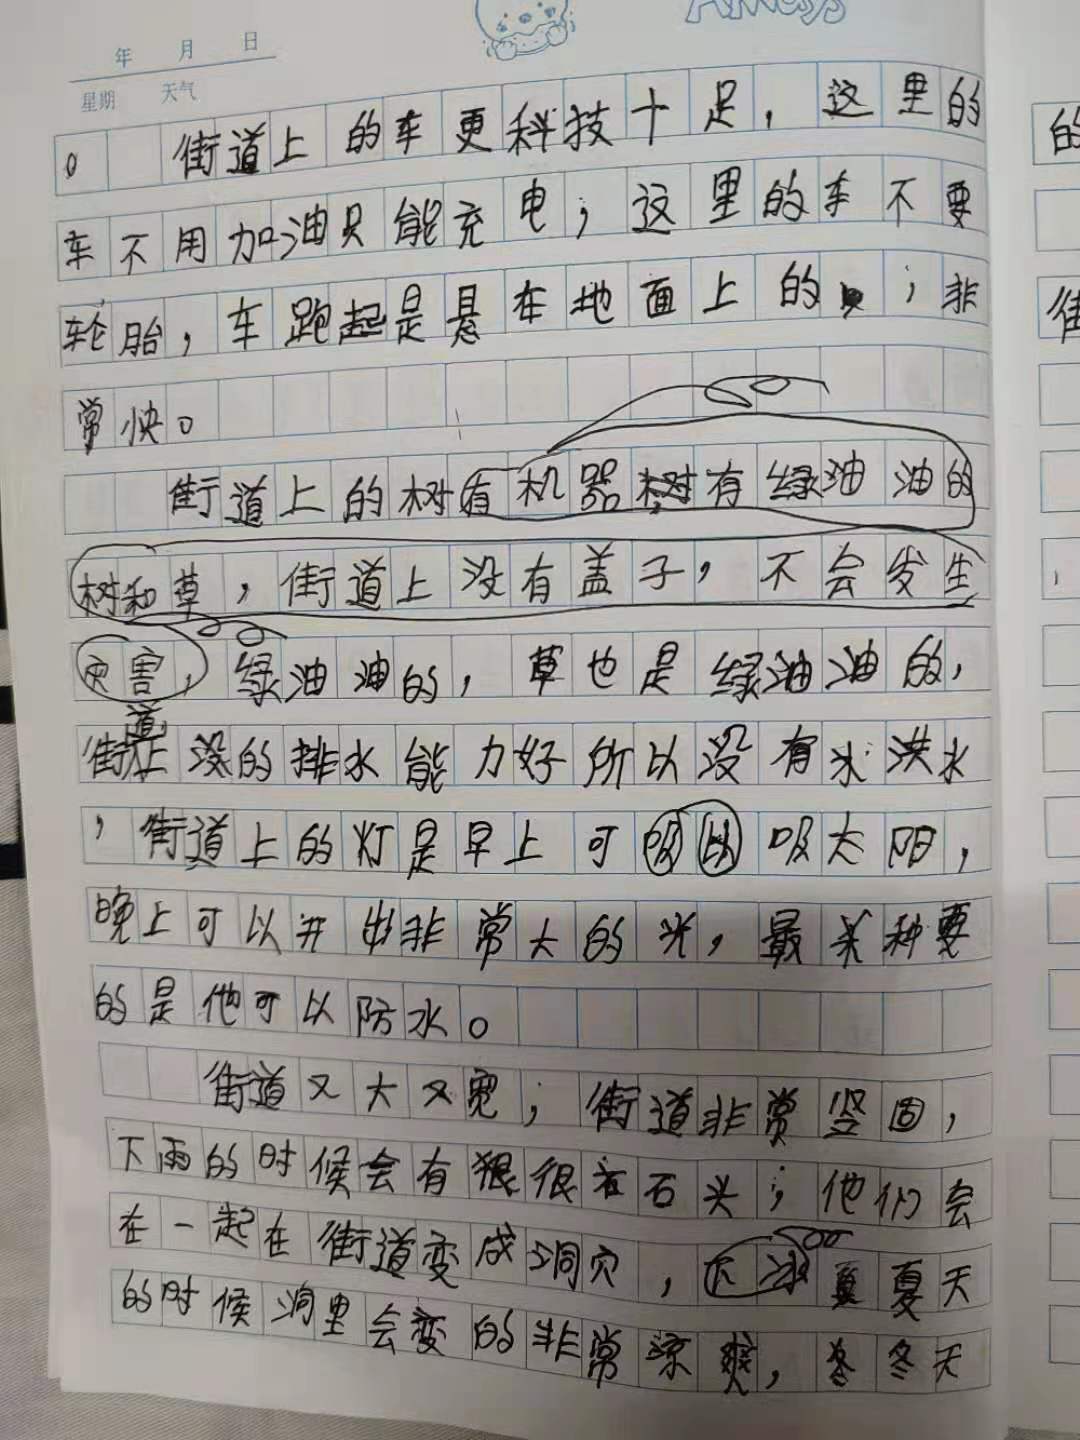 年 月 日
星期 天气
。 街道上的车更科技十足，这里的
车不用加油只能充电；这里的车不要
轮胎，车跑起是悬在地面上的；非
常快。
街道上的树有机器树有绿油油的
树和草，街道上没有盖子，不会发生
灾害，绿油油的，草也是绿油油的，
街道上没的排水能力好所以没有水洪水
，街道上的灯是早上可吸以吸太阳，
晚上可以开出非常大的光，最关种要
的是他可以防水。
街道又大又宽；街道非常坚固，
下雨的时候会有狠很石石头；他们会
在一起在街道变成洞穴，夏夏天
的时候洞里会变的非常凉爽，冬冬天
的
街